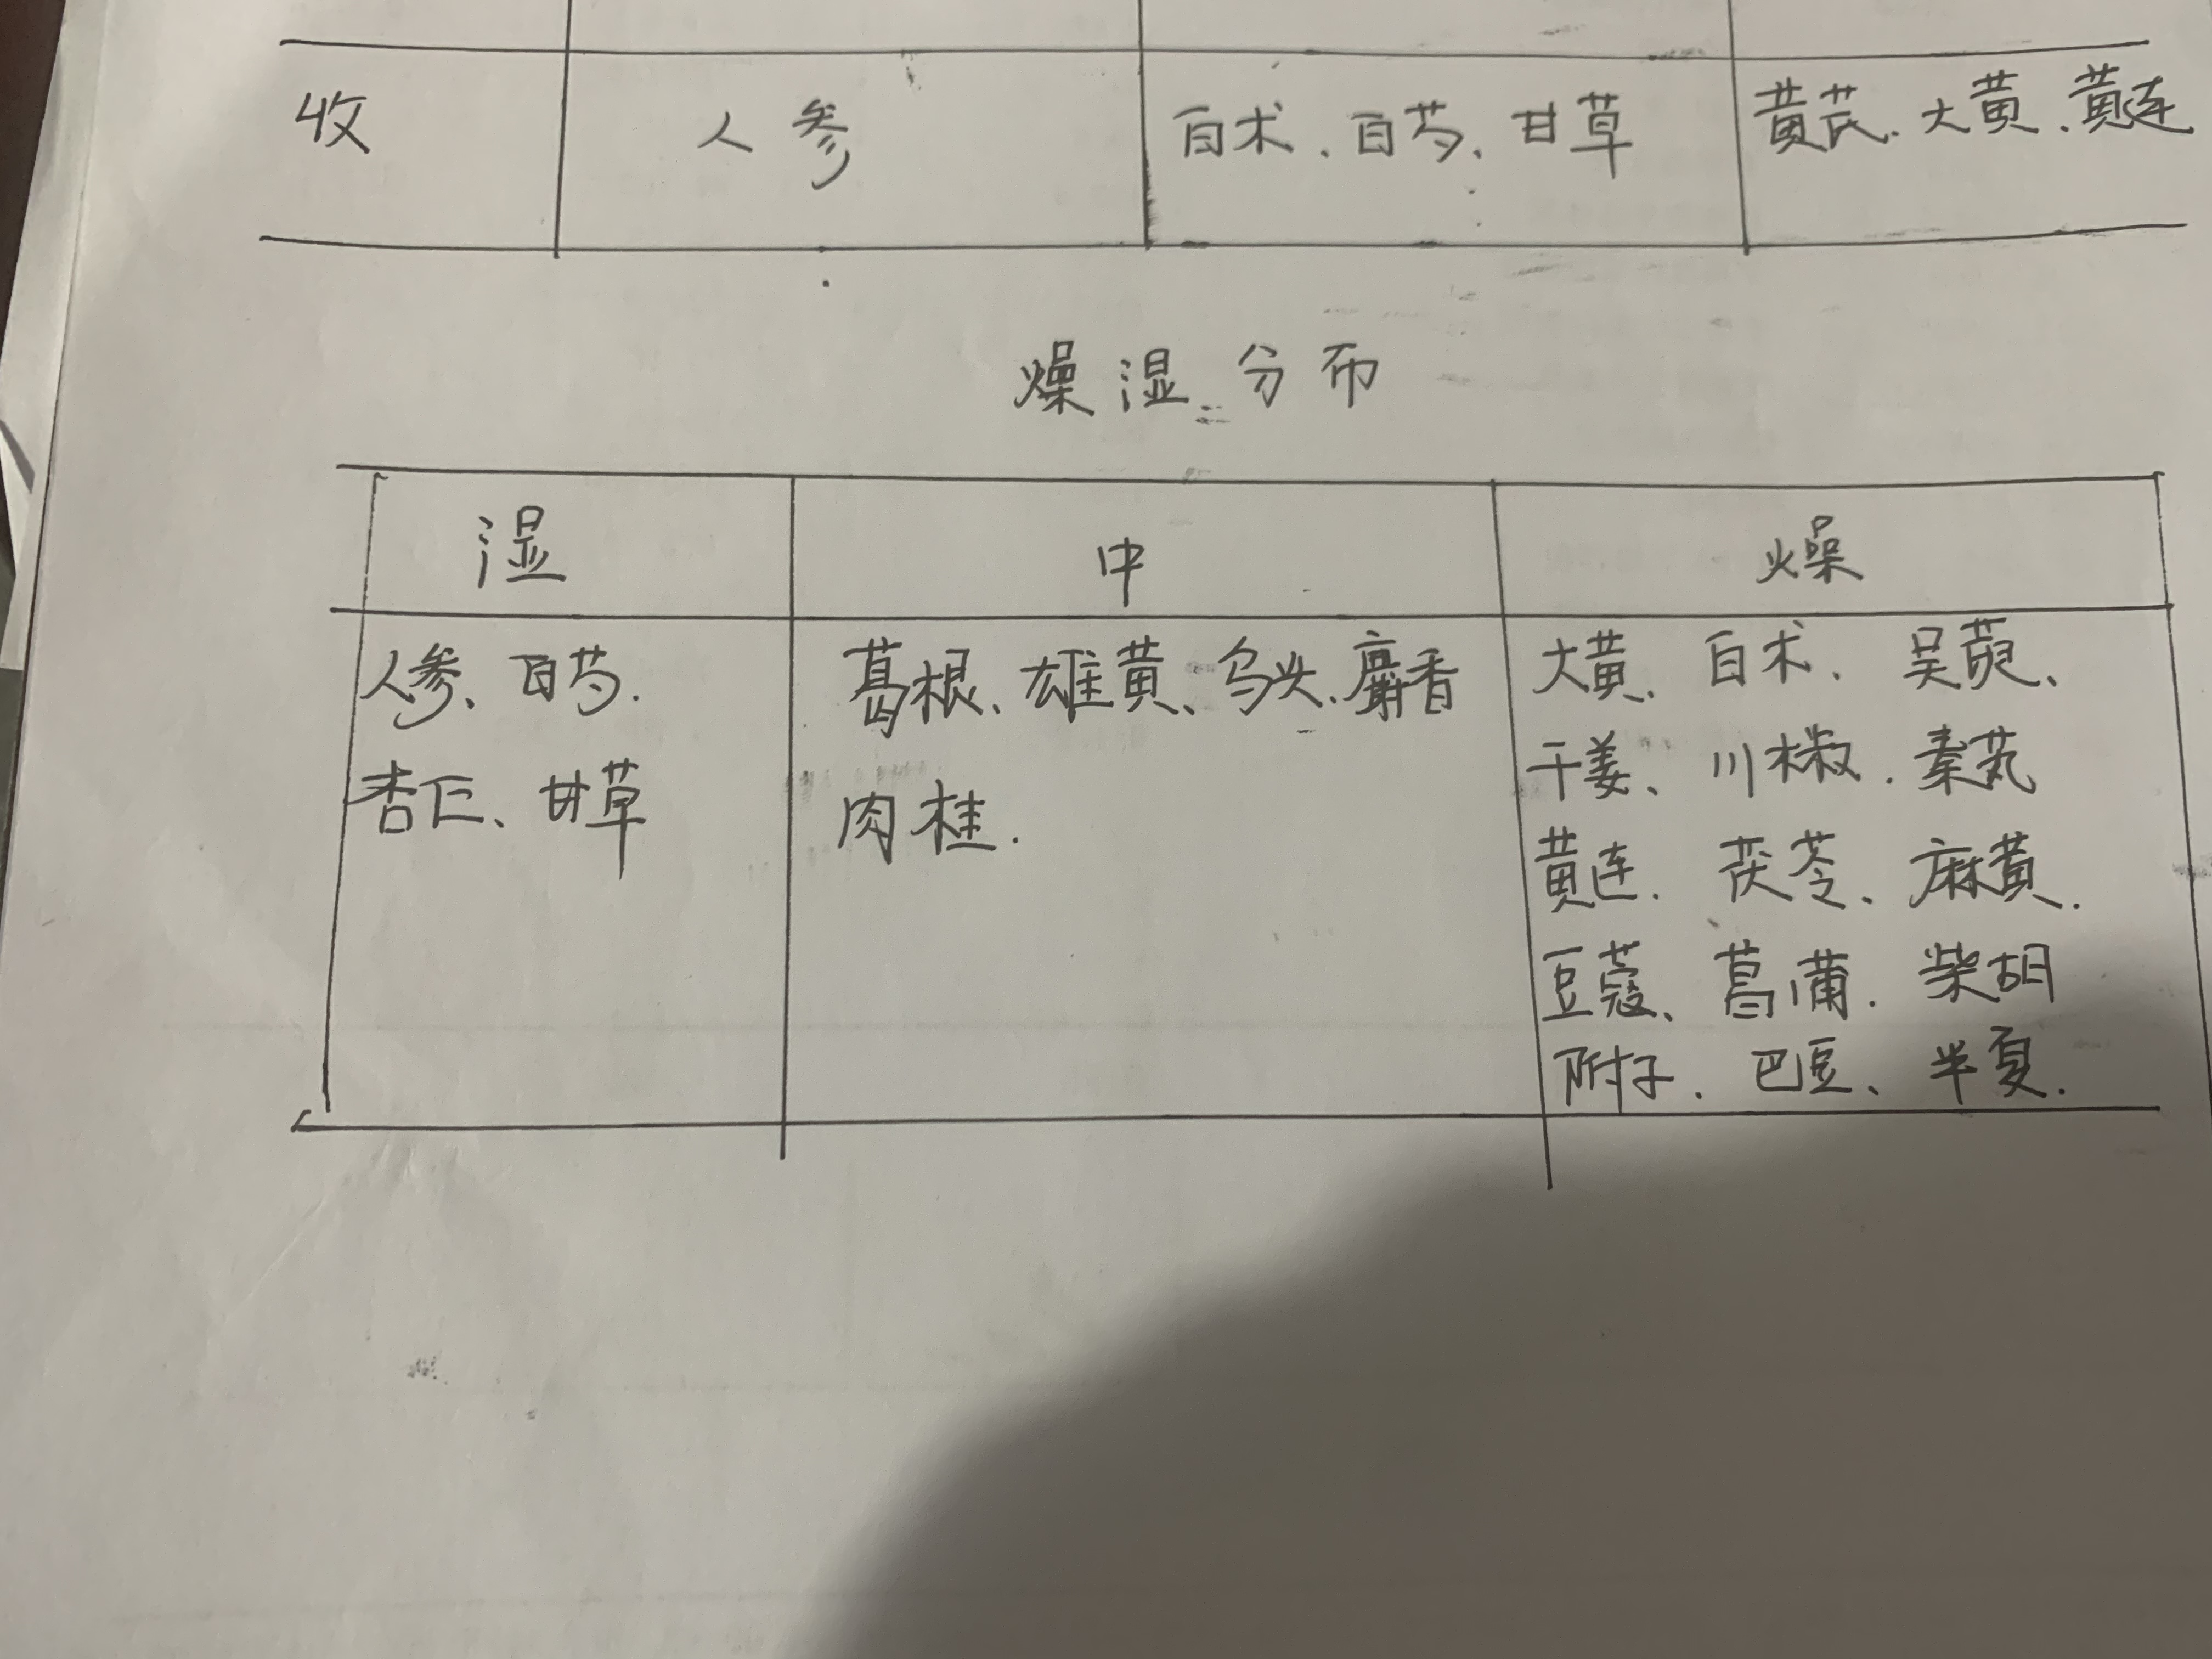 收 人参 白术、白芍、甘草 黄芪、大黄、黄连
燥湿分布
湿 中 燥
人参、白芍.
杏仁、甘草
葛根、雄黄、乌头、麝香
肉桂.
大黄、白术、吴萸、
干姜、川椒.秦艽
黄连.茯苓、麻黄.
豆蔻、菖蒲.柴胡
附子.巴豆、半夏.